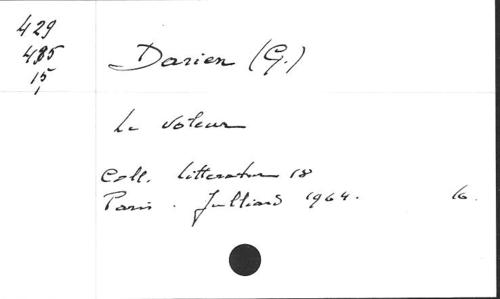 429
485
15
Darien (G.)
Le Voleur
Coll. Litterature 18
Paris. Julliard 1964. 16.